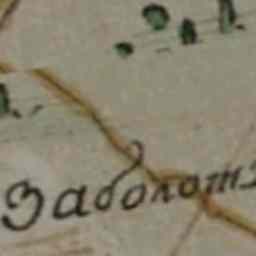 Заболотз